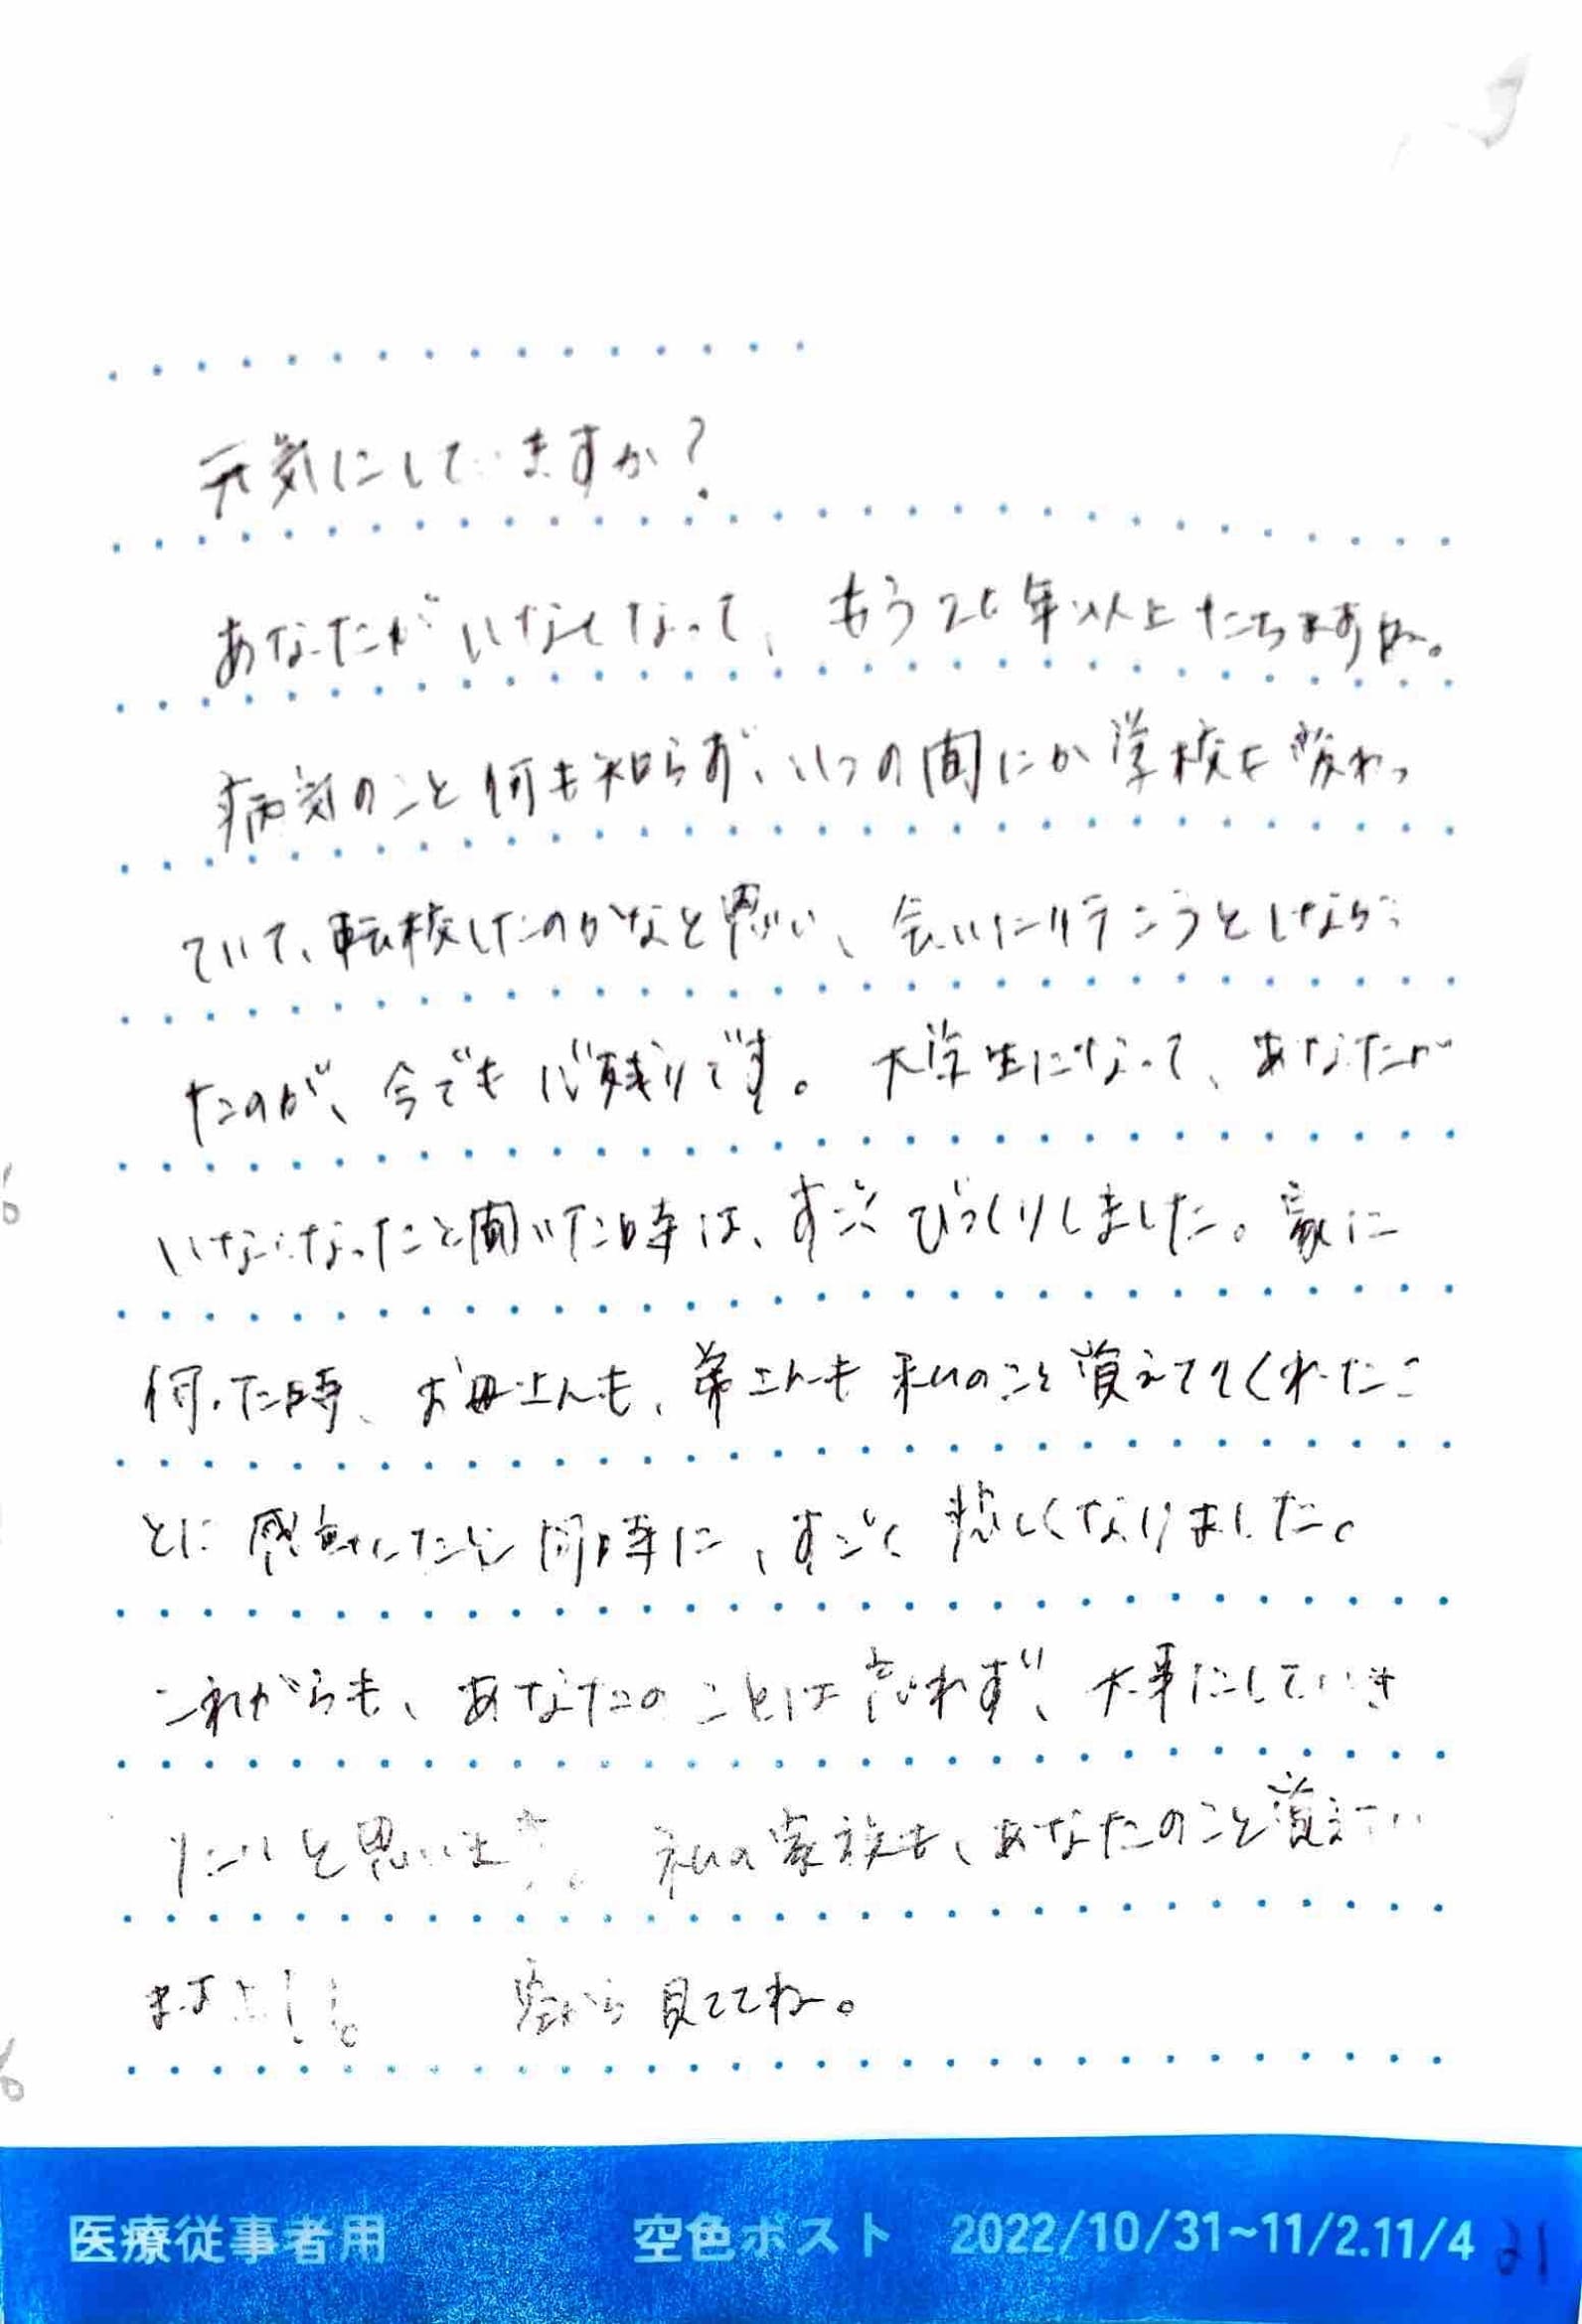 元気にしていますか?
あなたがいなくなって、もう 年以上たちますね。
病気のこと何も知らず、いつの間にか学校も変わっ
ていて、転校したのかなと思い、会いに行こうとしなかっ
たのが、今でも心残りです。大学生になって、あなたが
いなくなったと聞いた時は、すごくびっくりしました。家に
伺った時、お母さんも、弟さんも私のこと覚えててくれたこ
とに感動したと同時に、すごく悲しくなりました。
これからも、あなたのことは忘れず、大事にしていき
たいと思います。私の家族も、あなたのこと覚えてい
ますよ!!。 空から見ててね。
医療従事者用 空色ポスト 2022/10/31~11/2.11/4